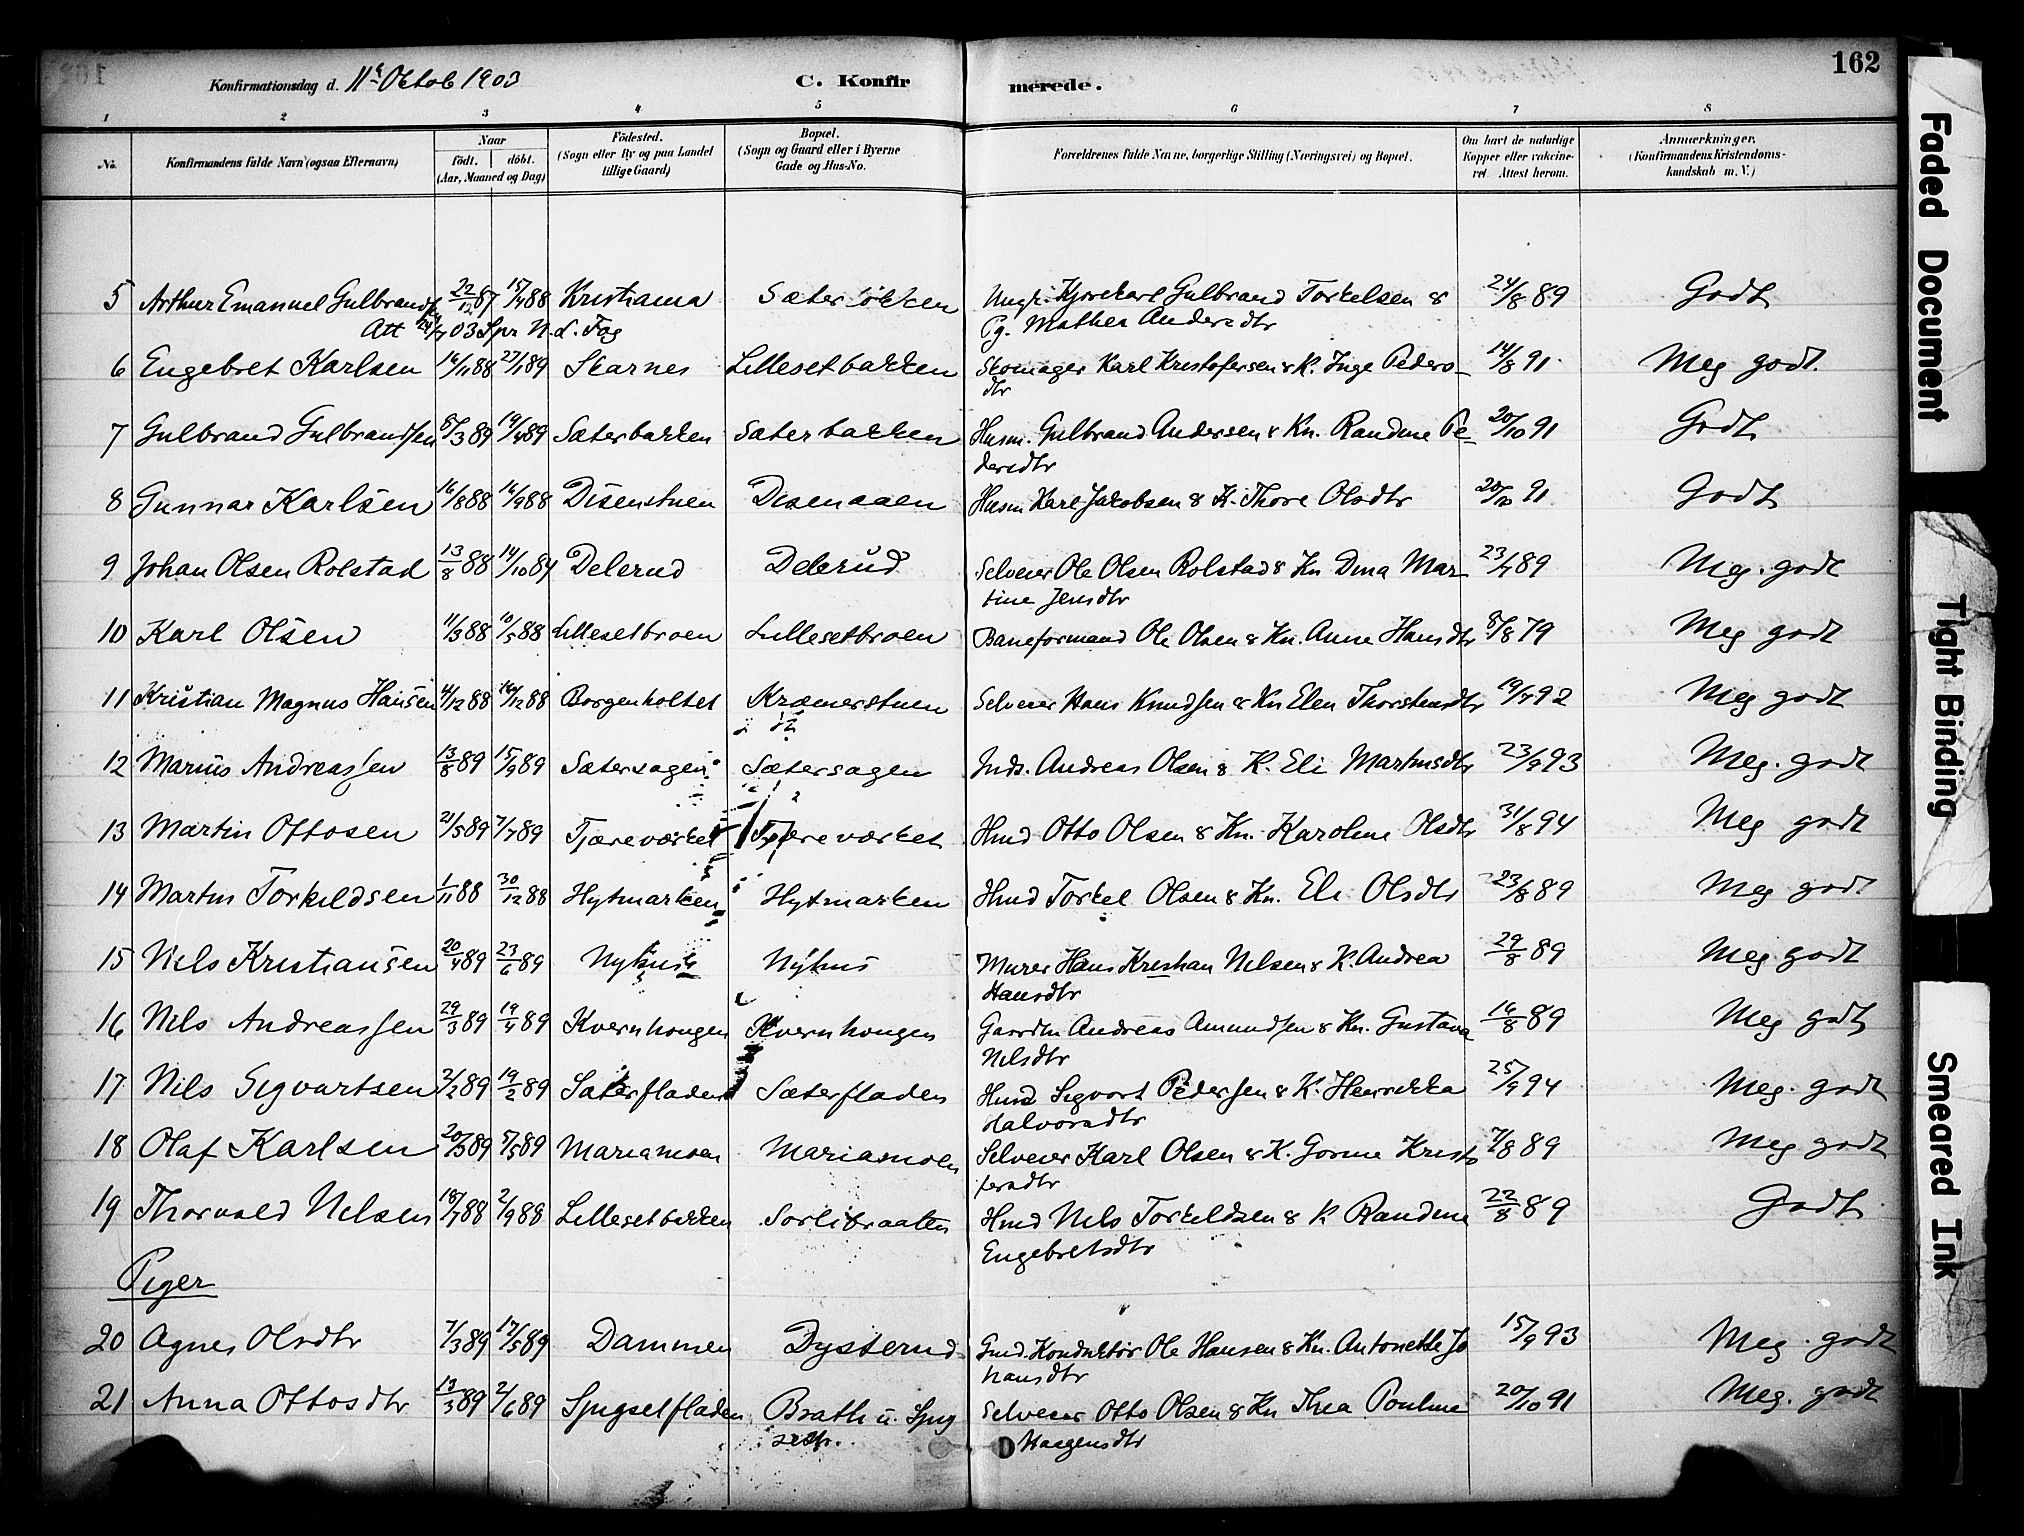 162
Konfirmationsdag d. 11te Oktob 1903 C. Konfirmerede.
1 2 3 4 5 6 7 8
No. Konfirmandens fulde Navn (ogsaa Efternavn) Naar födt. döbt. (Aar, Maaned og Dag) Födested. (Sogn eller By og paa Landet tillige Gaard) Bopæl. (Sogn og Gaard eller i Byerne Gade og Hus-No. Forældrenes fulde Navne, borgerlige Stilling (Næringsvei) og Bopæl. Om havt de naturlige Kopper eller vakcineret. Attest herom. Anmærkninger. (Konfirmandens Kristendomskundskab m. V.)
5 Arthur Emanuel Gulbrandsen 22/12 87 15/4 88 Kristiania Sæterløkken Ungk. Kjørekarl Gulbrand Torkelsen & 24/8 89 Godt
Att 03 Spr N. d. Fag Pg. Mathea Andersdtr
6 Engebret Karlsen 16/11 88 27/1 89 Skarnes Lillesetbakken Skomager Karl Kristofersen & K. Inge Peders- 14/8 91 Meg godt.
dtr
7 Gulbrand Gulbrandsen 8/3 89 19/4 89 Sæterbakken Sæterbakken Husm. Gulbrand Andersen & Kn. Randine Pe- 20/10 91 Godt
dersdtr
8 Gunnar Karlsen 16/8 88 16/9 88 Disenstuen Disenaaen Husm Karl Jakobsen & K. Thore Olsdtr 20/10 91 Godt
9 Johan Olsen Rolstad 13/8 88 14/10 84 Delerud Delerud Selveier Ole Olsen Rolstad & Kn Dina Mar- 23/7 89 Meg. godt
tine Jensdtr
10 Karl Olsen 11/3 88 10/5 88 Lillesetbroen Lillesetbroen Baneformand Ole Olsen & Kn. Anne Hansdtr 8/8 79 Meg godt
11 Kristian Magnus Hansen 4/12 88 16/12 88 Borgenholtet Kræmerstuen Selveier Hans Knudsen & Kn Elen Thorstensdtr 19/7 92 Meg godt
12 Marius Andreassen 13/8 89 15/9 89 Sætersagen Sætersagen Inds. Andreas Olsen & K. Eli Martinsdtr 23/9 93 Meg. godt
13 Martin Ottosen 21/5 89 7/7 89 Tjæreværket Tjæreværket Hmd Otto Olsen & Kn. Karoline Olsdtr 31/8 94 Meg godt
14 Martin Torkildsen 1/11 88 30/12 88 Hytmarken Hytmarken Hmd Torkel Olsen & Kn. Eli Olsdtr 23/8 89 Meg godt
15 Niels Kristiansen 20/4 89 23/6 89 Nyhus Nyhus Murer Hans Kristian Nilsen & K. Andrea 29/8 89 Meg godt
Hansdtr
16 Nils Andreassen 29/3 89 19/4 89 Kvernhougen Kvernhougen Gaardm Andreas Amundsen & Kn. Gustava 16/8 89 Meg godt
Nilsdtr
17 Nils Sigvartsen 2/2 89 19/2 89 Sæterfladen Sæterfladen Hmd Sigvart Pedersen & K. Henrikka 25/9 94 Meg. godt
Halvorsdtr
18 Olaf Karlsen 20/3 89 5/5 89 Mariamoen Mariamoen Selveier Karl Olsen & K. Gorine Kristo 7/8 89 Meg godt
fersdtr
19 Thorvald Nilsen 18/7 88 2/9 88 Lillesetbakken Sorlibraaten Hmd Nils Torkildsen & K Randine 22/8 89 Godt
Engebretsdtr
Piger
20 Agnes Olsdtr 7/3 89 17/5 89 Dammen Dysterud Gmd. Konduktör Ole Hansen & Kn. Antonette Jo 15/9 93 Meg. godt
hansdtr
21 Anna Ottosdtr 13/3 89 2/6 89 Spigsetfladen Brath u. Spig Selveier Otto Olsen & Kn Thea Pouline 20/10 91 Meg. godt
setr. Haagensdtr
Faded Document
Tight Binding
Smeared Ink